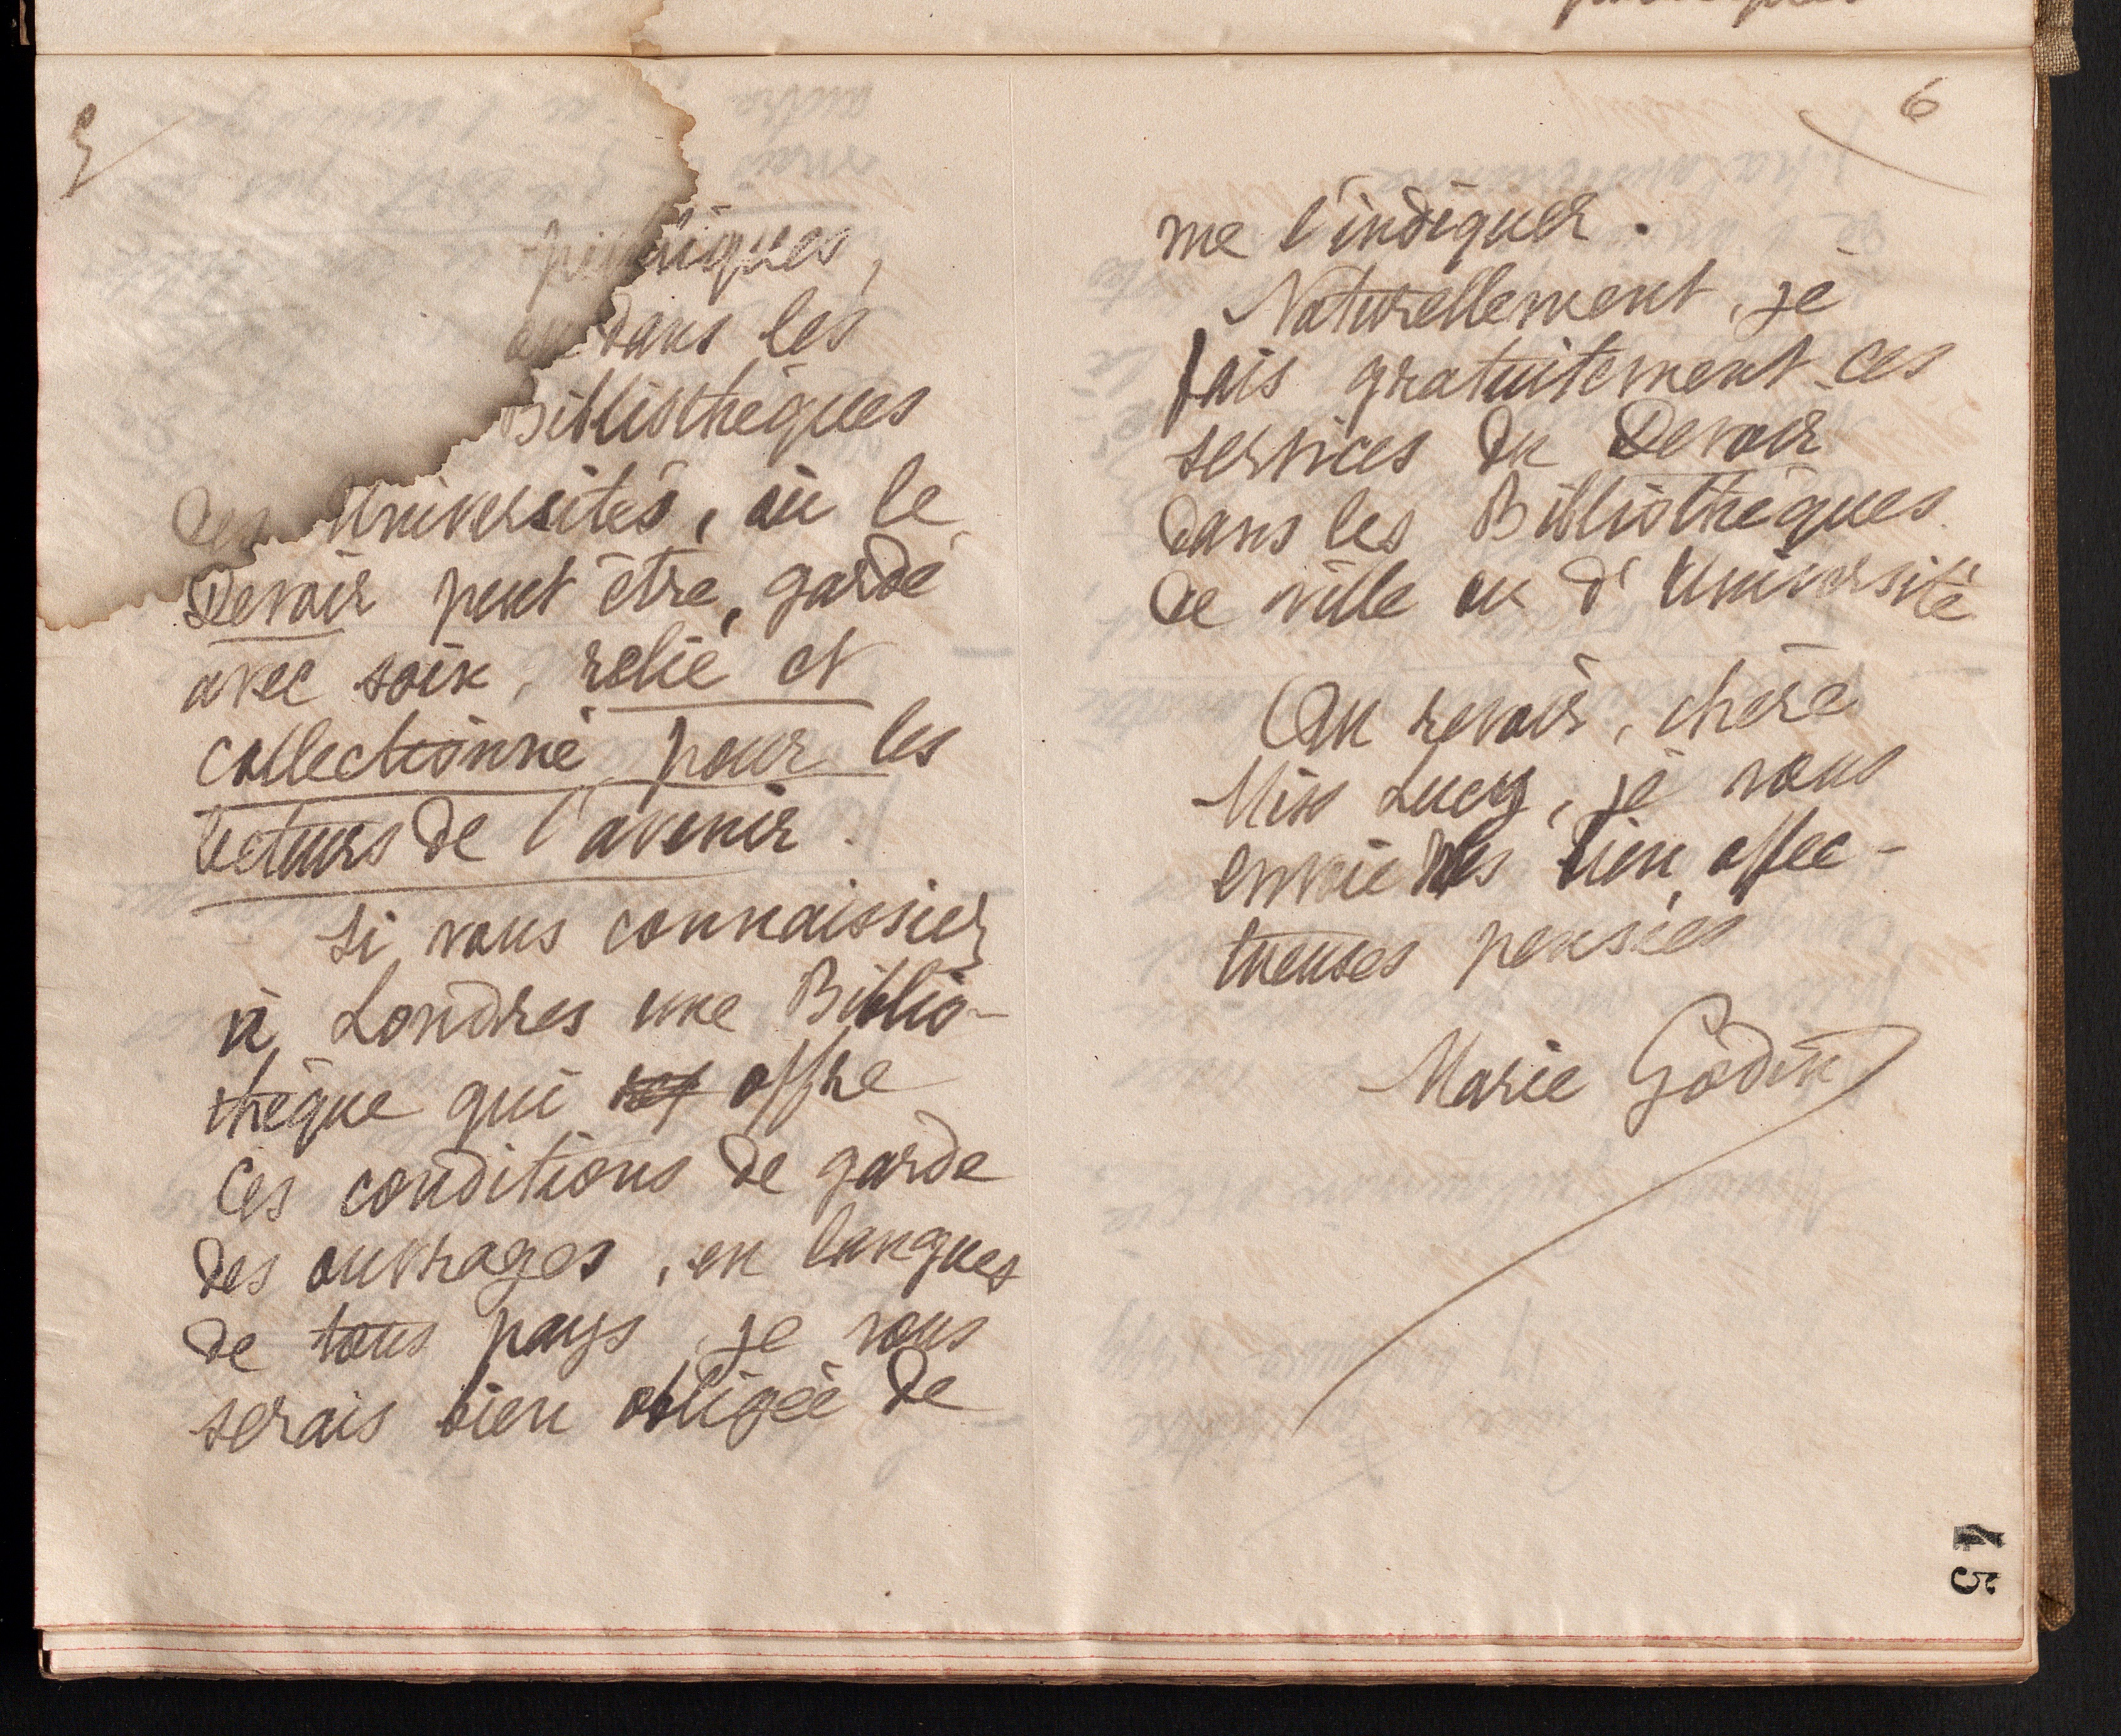 5
publiques,
ou dans les
Bibliothèques
des Universités, où le
Devoir peut être, gardé
avec soin, relié et
collectionné pour les
lecteurs de l'avenir.
Si vous connaissiez
à Londres une Biblio-
thèque qui offre
ces conditions de garde
des ouvrages, en langues
de tous pays, je vous
serais bien obligée de
6
me l'indiquer.
Naturellement, je
fais gratuitement ces
services du Devoir
dans les Bibliothèques
de ville ou d'Université
Au revoir, chère
Miss Lucy, je vous
envoie mes bien affec-
tueuses pensées
Marie Godin
45